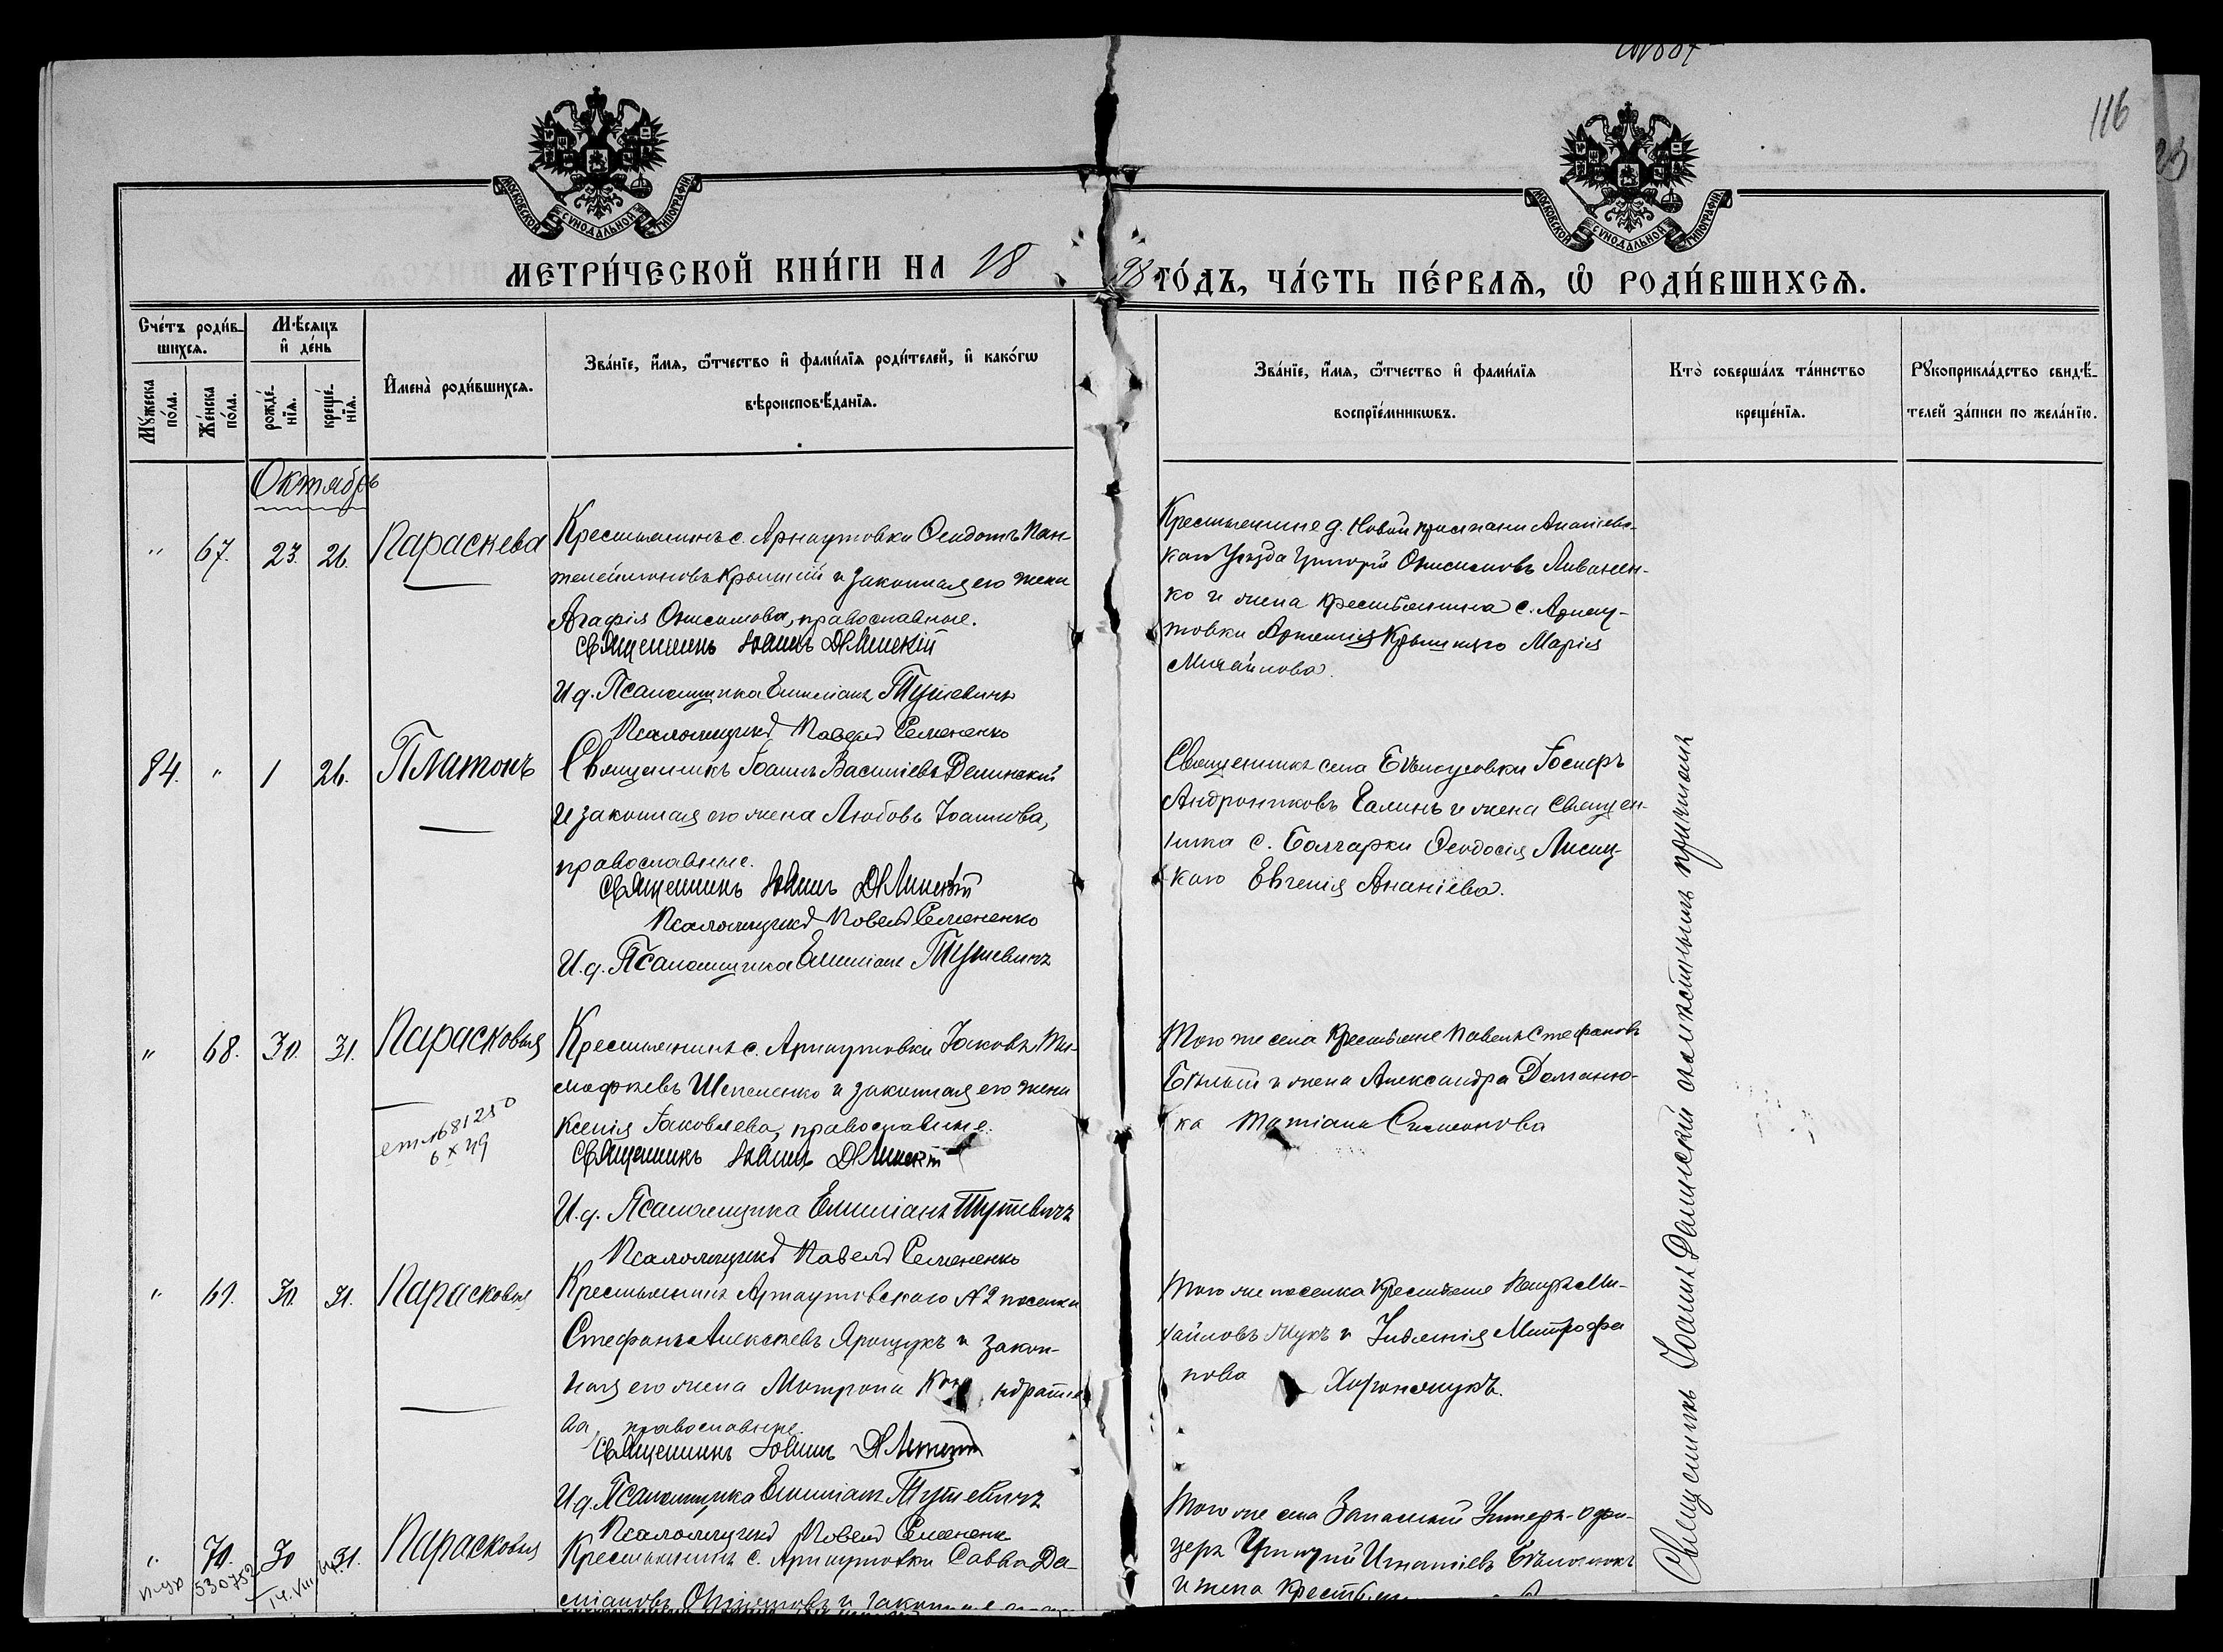 116
МОСКОВСКОЙ СУНОДАЛЬНОЙ ТИПОГРАФІИ
МОСКОВСКОЙ СУНОДАЛЬНОЙ ТИПОГРАФІИ
МЕТРИ́ЧЕСКОЙ КНИ́ГИ НА 18
98 ГО́ДЪ, ЧА́СТЬ ПЕ́РВАѦ, Ѡ҆ РОДИ́ВШИХСѦ.
Сче́тъ роди́в-
шихся.
Мѣ́сяцъ
и҆ де́нь
Му́жеска
по́ла.
Же́нска
по́ла.
рожде́-
нїя.
креще́-
нїя.
И҆мена̀ роди́вшихся.
Зва́нїе, и҆́мя, ѻ҆́тчество и҆ фами́лїя роди́телей, и҆ како́гѡ
вѣроисповѣ́данїя.
Зва́нїе, и҆́мя, ѻ҆́тчество и҆ фами́лїя
воспрїе́мникѡвъ.
Кто̀ соверша́лъ та́инство
креще́нїя.
Рꙋкоприкла́дство свидѣ́-
телей за́писи по жела́нїю.
Октябрь
" 67. 23. 26. Параскева
Крестьянинъ с. Арнаутовки Ѳеодотъ Пан-
телеймоновъ Крыницкій и законная его жена
Агафія Онисимова, православные.
Священникъ Іоаннъ Делинскій
И д. Псаломщика Емиліанъ
Псаломщикъ Павелъ Семененко
Крестьянине д. Новой Ананіевс-
каго Уѣзда Григорій Онисимовъ Ливанен-
ко и жена крестьянина с. Арнау-
товки Артемія Крыницкаго Марія
Михайлова.
84. " 1 26. Платонъ
Священникъ Іоаннъ Василіевъ Делинскій
и законная его жена Любовь Іоаннова,
православные.
Священникъ Іоаннъ Делинскій
Псаломщикъ Павелъ Семененко
И. д. Псаломщика Емиліанъ
Священникъ села Бѣлоусовки Іосифъ
Андрониковъ Галинъ и жена Священ-
ника с. Болгарки Ѳеодосія Лисиц-
каго Евгенія Ананіева.
" 68. 30. 31. Парасковья
Крестьянинъ с. Арнаутовки Іаковъ Ти-
моѳѣевъ Шепеленко и законная его жена
Ксенія Іаковлева, православные.
Священникъ Іоаннъ Делинскій
И. д. Псаломщика Емиліанъ
Псаломщикъ Павелъ Семененко
Того же села Крестьяне Павелъ Стефановъ
Бѣлый и жена Александра Доманю-
ка Татіана Симеонова
681250
6 X 49
" 69. 30. 31. Парасковья
Крестьянинъ Арнаутовскаго №2 поселка
Стефанъ Алексѣевъ Ярощукъ и закон-
ная его жена Матрона Кондратіе-
ва, православные.
Священникъ Іоаннъ Делинскій
И д. Псаломщика Емиліанъ
Псаломщикъ Павелъ Семененко
Того же поселка Крестьяне Петръ Ми-
хайловъ Жукъ и Митрофа
нова
" 70. 30 31. Парасковья
530752
Крестьянинъ с. Арнаутовки Савва Да-
міановъ и законная
Того же села Запасный Унтеръ-офи-
церъ Григорій Игнатіевъ
и жена крестьян
Священникъ Іоаннъ Делинскій съ мѣстнымъ причтомъ